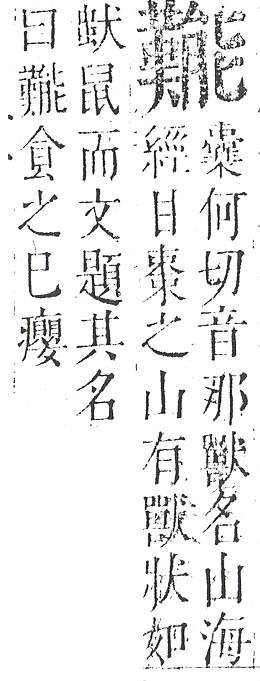 囊何切音那獸名山海
經曰棗之山有獸狀如
鼠而文題其名
曰食之巳癭